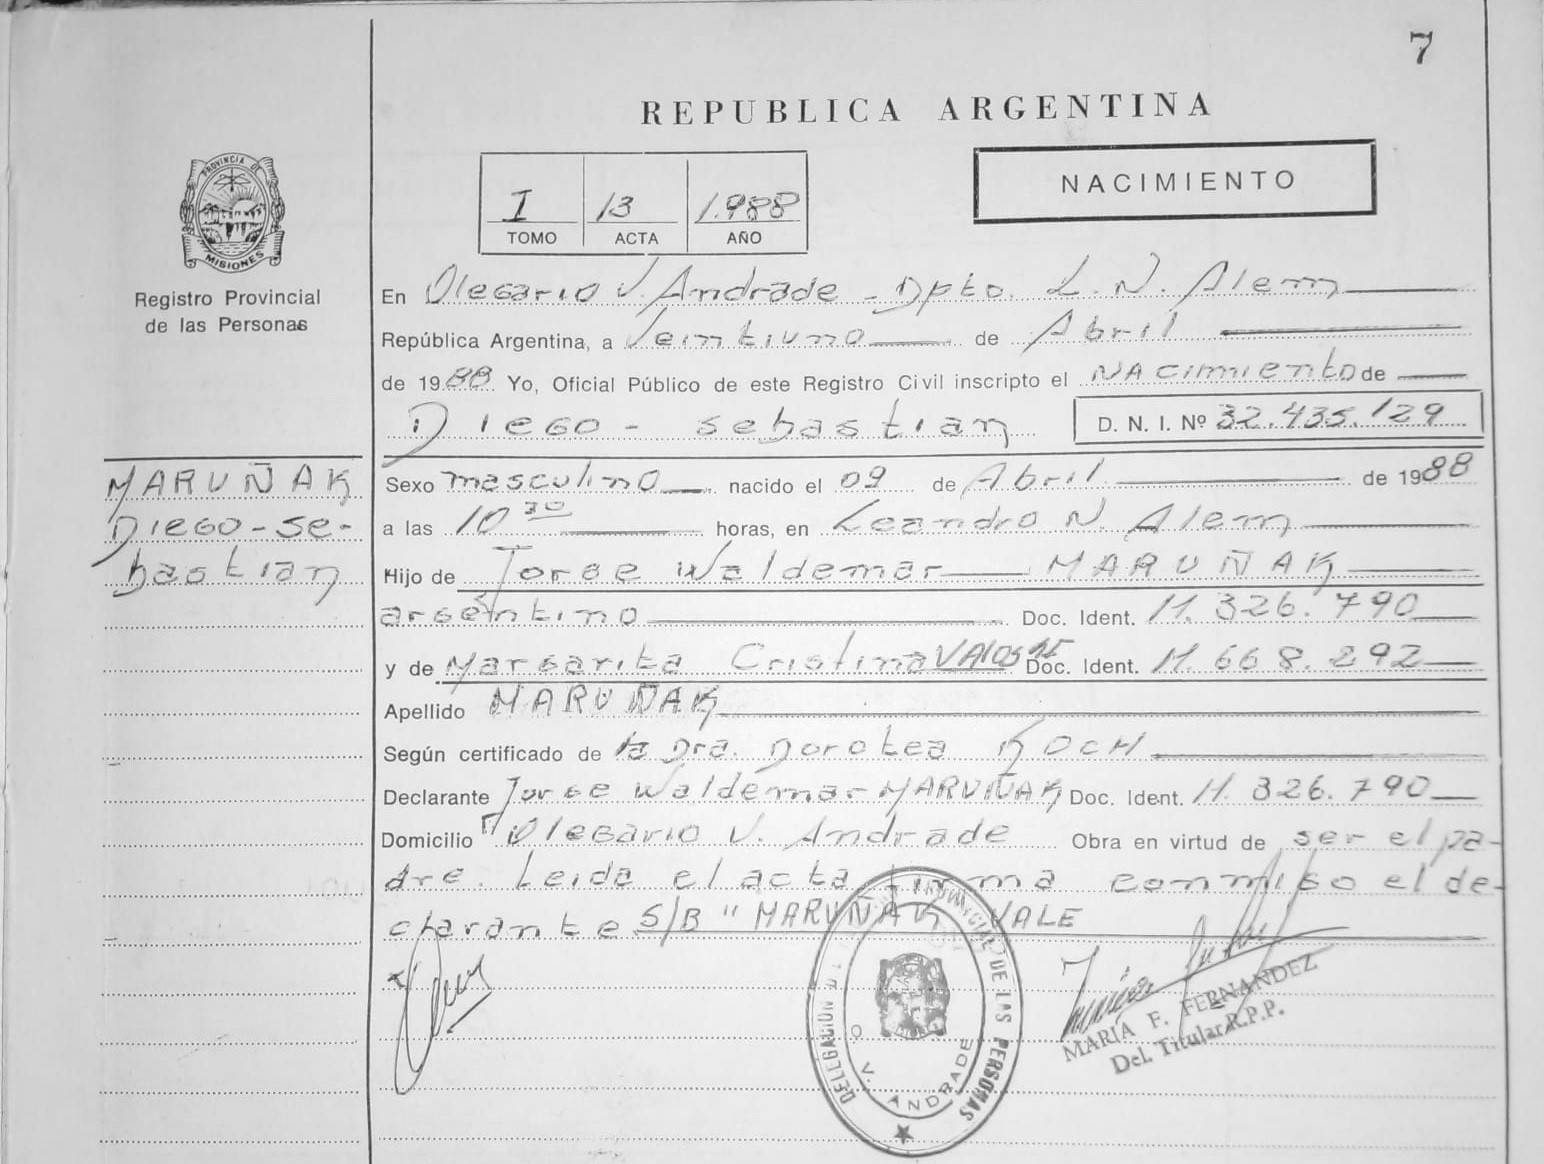 7
REPUBLICA ARGENTINA
PROVINCIA DE
MISIONES
Registro Provincial
de las Personas
I 13 1.988
TOMO ACTA AÑO
NACIMIENTO
En Olegario V. Andrade - Dpto. L. N. Alem
República Argentina, a Veintiuno de Abril
de 1988 Yo, Oficial Público de este Registro Civil inscripto el NAcimiento de
Diego - Sebastian D. N. I. Nº 32.435.129
MARUÑAK
Diego-Se-
bastian
Sexo masculino nacido el 09 de Abril de 1988
a las 10 30 horas, en Leandro N. Alem
Hijo de Jorge Waldemar MARUÑAK
argentino Doc. Ident. 11.326.790
y de Margarita Cristina Doc. Ident. 11.668.292
Apellido MARUÑAK
Según certificado de la Dra. Dorotea KOCH
Declarante Jorge Waldemar MARUÑAK Doc. Ident. 11.326.790
Domicilio Olegario V. Andrade Obra en virtud de ser el pa-
dre. Leida el acta firma conmigo el de-
clarante S/B "MARUÑAK VALE
DELEGACION PROVINCIAL DE LAS PERSONAS
O. V. ANDRADE
MARIA F. FERNANDEZ
Del. Titular R.P.P.